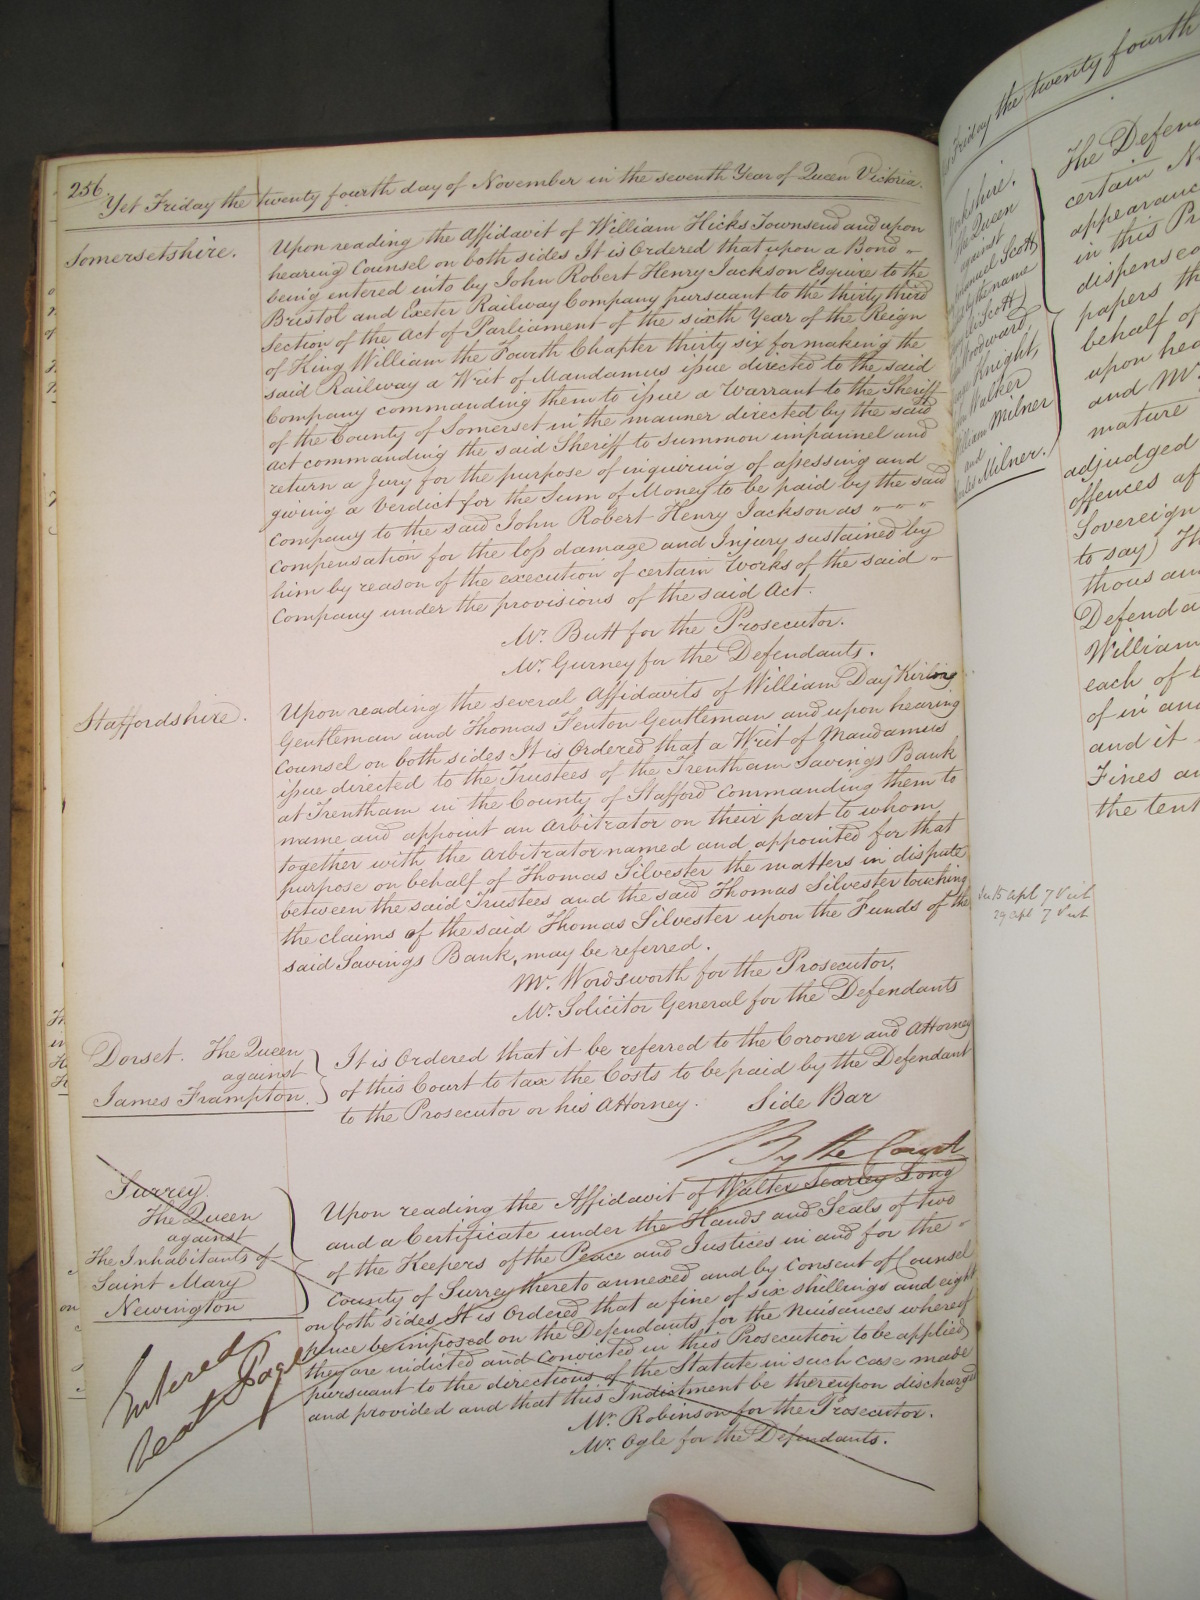 256.
Yet Friday the twenty fourth day of November in the seventh Year of Queen Victoria.
Somersetshire.
Upon reading the Affidavit of William Hicks Townsend and upon
hearing Counsel on both sides It is Ordered that upon a Bond
being entered into by John Robert Henry Jackson Esquire to the
Bristol and Exeter Railway Company pursuant to the thirty third
section of the Act of Parliament of the sixth Year of the Reign
of King William the Fourth Chapter thirty six for making the
said Railway a Writ of Mandamus issue directed to the said
Company commanding them to issue a Warrant to the Sheriff
of the County of Somerset in the manner directed by the said
Act commanding the said Sheriff to summon impannel and
return a Jury for the purpose of inquiring of assessing and
giving a Verdict for the Sum of Money to be paid by the said
Company to the said John Robert Henry Jackson as
Compensation for the loss damage and Injury sustained by
him by reason of the execution of certain Works of the said
Company under the provisions of the said Act.
Mr. Butt for the Prosecutor.
Mr. Gurney for the Defendants.
Staffordshire.
Upon reading the several Affidavits of William Day
Gentleman and Thomas Fenton Gentleman and upon hearing
Counsel on both sides It is Ordered that a Writ of Mandamus
issue directed to the Trustees of the Trentham Savings Bank
at Trentham in the County of Stafford commanding them to
name and appoint an Arbitrator on their part to whom
together with the Arbitrator named and appointed for that
purpose on behalf of Thomas Silvester the matters in dispute
between the said Trustees and the said Thomas Silvester touching
the claims of the said Thomas Silvester upon the Funds of the
said Savings Bank, may be referred.
Mr. Wordsworth for the Prosecutor.
Mr. Solicitor General for the Defendants
Dorset. The Queen
against
James Frampton.
It is Ordered that it be referred to the Coroner and Attorney
of this Court to tax the Costs to be paid by the Defendant
to the Prosecutor or his Attorney. Side Bar
By the Court
Surrey.
The Queen
against
The Inhabitants of
Saint Mary
Newington
Upon reading the Affidavit of Walter Searley Long
and a Certificate under the Hands and Seals of two
of the Keepers of the Peace and Justices in and for the
County of Surrey thereto annexed and by Consent of Counsel
on both sides It is Ordered that a fine of six shillings and eight
pence be imposed on the Defendants for the Nuisances whereof
they are indicted and convicted in this Prosecution to be applied
pursuant to the directions of the Statute in such case made
and provided and that this Indictment be thereupon discharged
Mr. Robinson for the Prosecutor.
Mr. Ogle for the Defendants.
Entered
next Page
Friday the twenty fourth
Yorkshire.
The Queen
against
Scott
by the name
Scott
Woodward,
Knight,
Walker
William Milner
and
Milner.
The Defen
certain
appearanc
in this Pr
dispensed
papers th
behalf of
upon hea
and Mr.
mature
adjudged
offences af
Sovereign
to say)
thousan
Defenda
William
each of
of in and
and it
Fines an
the tent